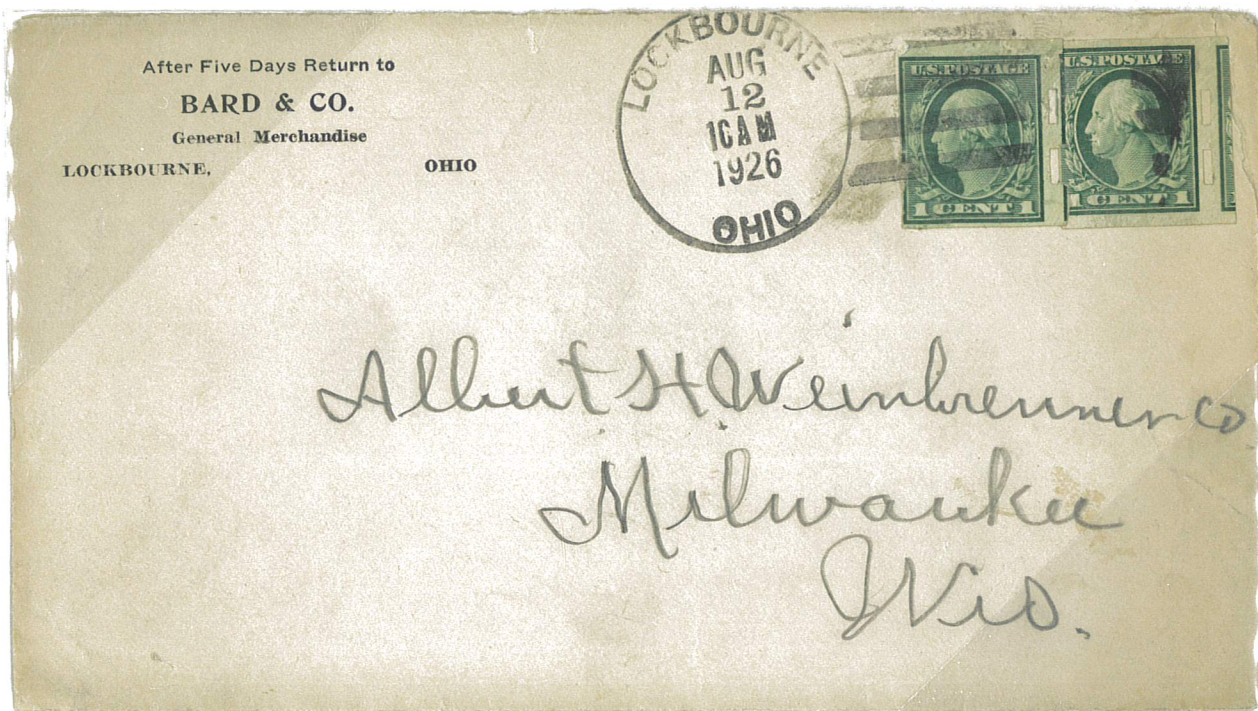 After Five Days Return to
BARD & CO.
General Merchandise
LOCKBOURNE, OHIO
LOCKBOURNE
AUG
12
10 AM
1926
OHIO
U.S. POSTAGE
1 CENT 1
U.S. POSTAGE
1 CENT 1
Albert H Weinbrenner Co
Milwaukee
Wis.